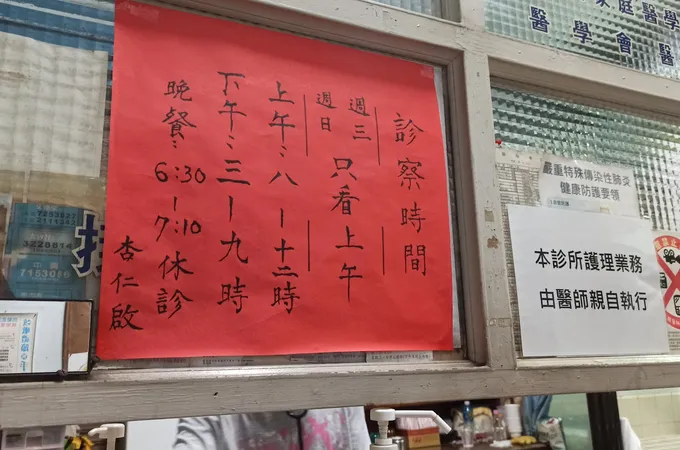 診察時間
週三
週日
只看上午
上午：八－十二時
下午：三－九時
晚餐：6:30－7:10休診
杏仁啟
家庭醫學
醫學會醫
嚴重特殊傳染性肺炎
健康防護要領
本診所護理業務
由醫師親自執行
7153086